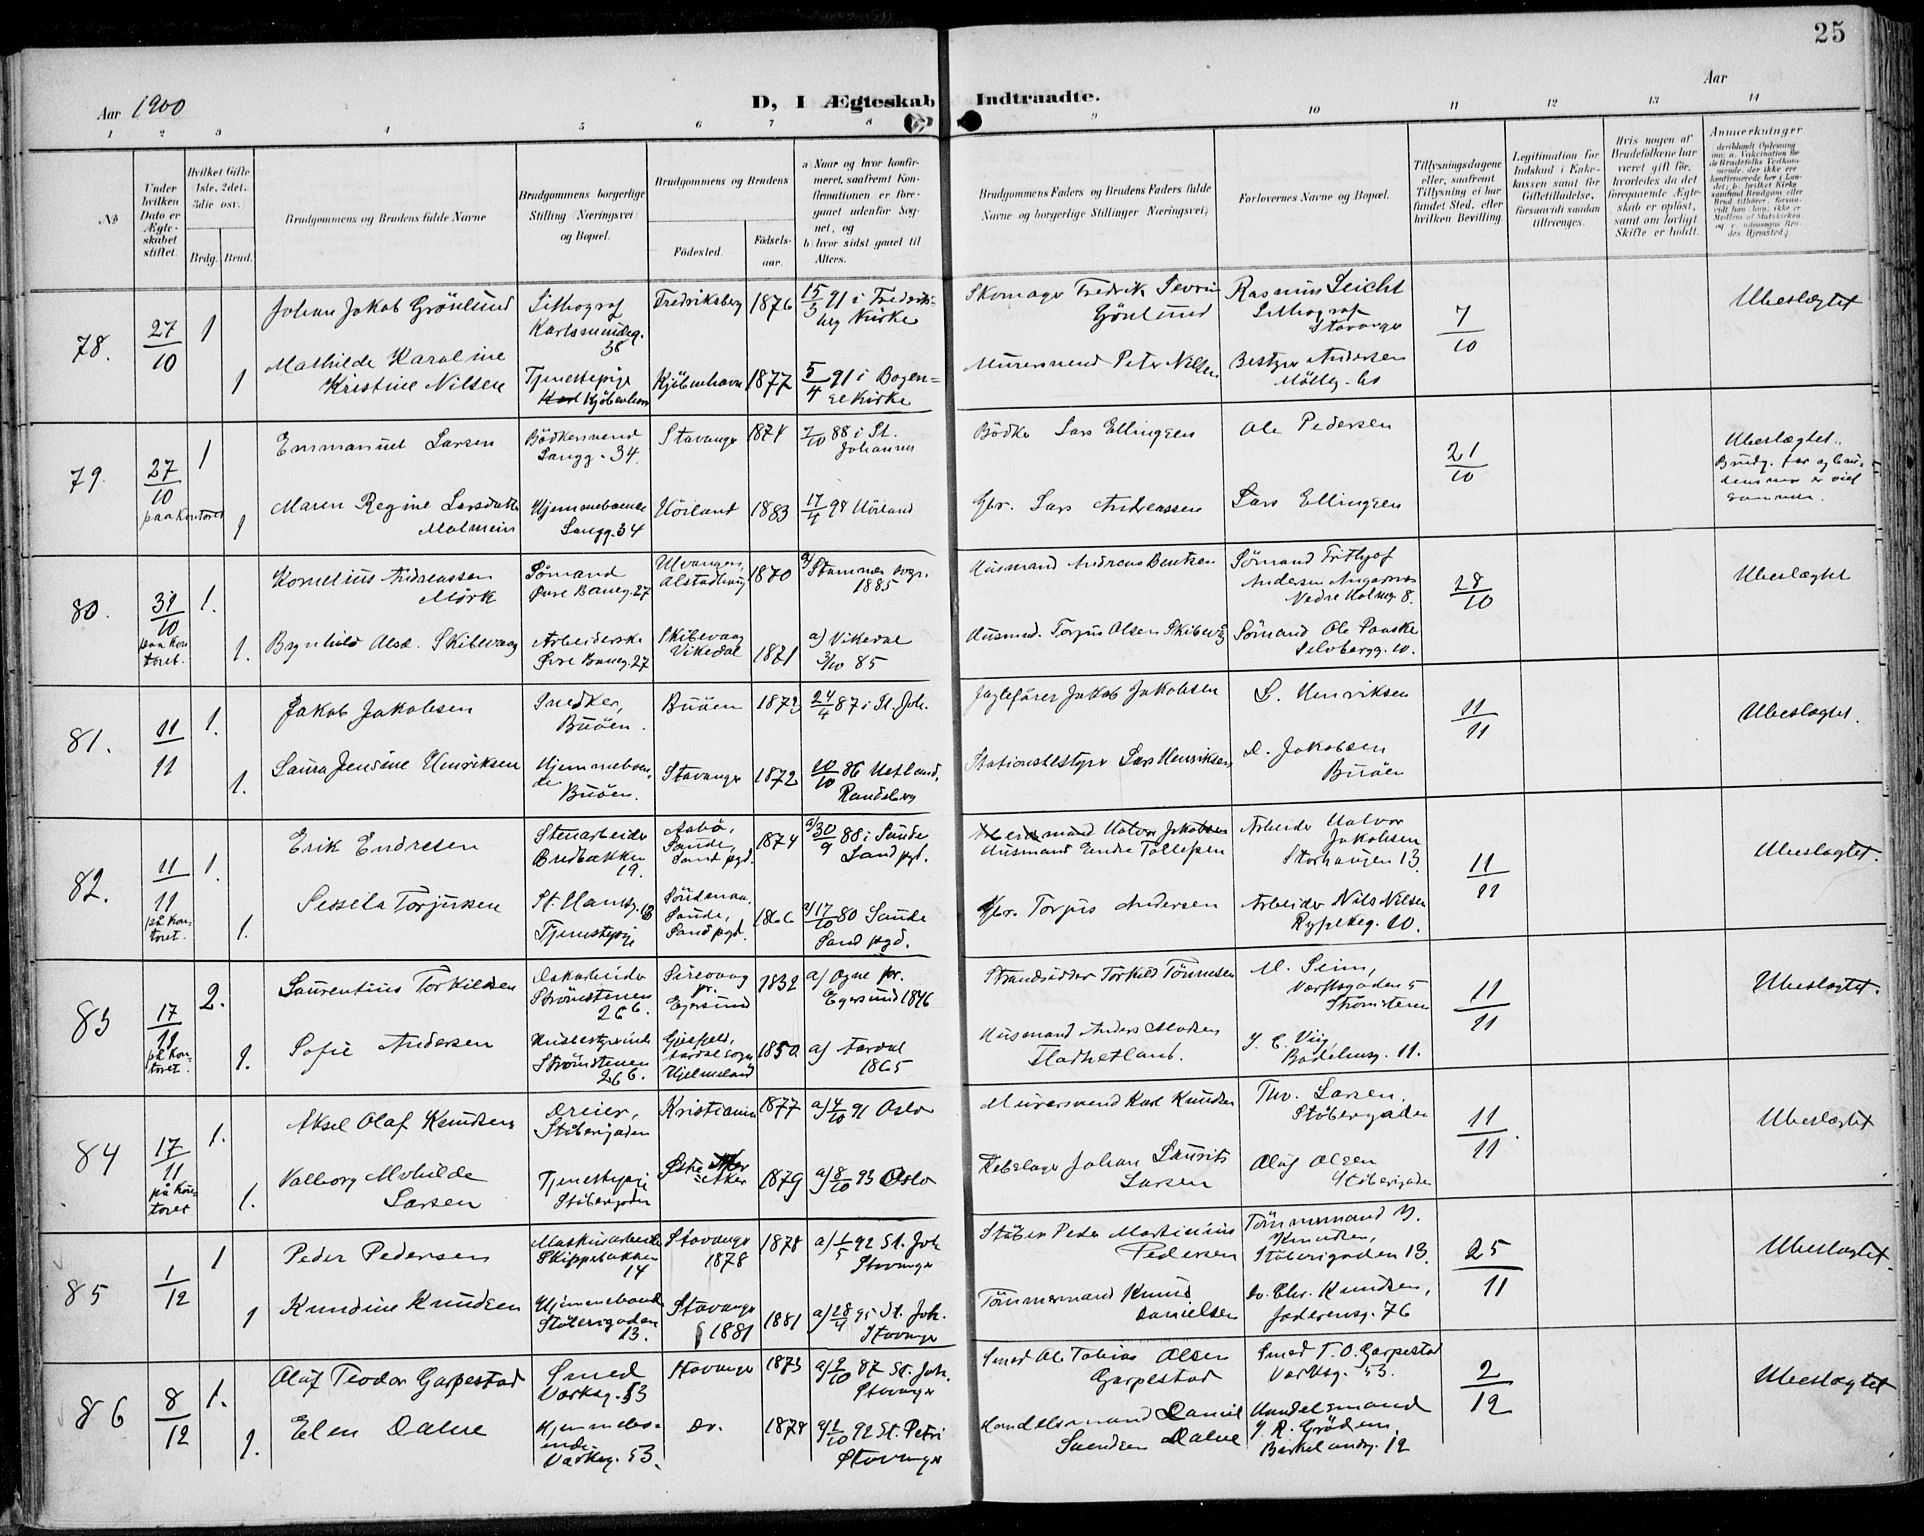 25
Aar 1900
D, I Ægteskab Indtraadte.
Aar
1 2 3 4 5 6 7 8 9 10 11 12 13 14
№
Under hvilken Dato er Ægteskabet stiftet.
Hvilket Gifte 1ste, 2det, 3die osv.
Brdg. Brud.
Brudgommens og Brudens fulde Navne
Brudgommens borgerlige Stilling Næringsvei og Bopæl.
Brudgommens og Brudens
Fødested.
Fødselsaar.
a) Naar og hvor konfirmeret, saafremt Konfirmationen er foregaaet udenfor Sognet, og
b) hvor sidst gaaet til Alters.
Brudgommens Faders og Brudens Faders fulde Navne og borgerlige Stillinger Næringsvei;
Forlovernes Navne og Bopæl.
Tillysningsdagene eller, saafremt Tillysning ei har fundet Sted, efter hvilken Bevilling.
Legitimation for Indskud i Enkekassen samt for Giftetilladelse, forsaavidt saadan tiltrænges.
Hvis nogen af Brudefolkene har været gift før, hvorledes da det foregaaende Ægteskab er opløst, samt om lovligt Skifte er holdt.
Anmærkninger
78.
27/10
1
Johan Jakob Grönlund
Lithograf
Karlsmindeg.
38
Fredriksberg
1876
15/3 91 i Fredriksberg Kirke
Skomager Fredrik Severin
Gönlund
Rasmus Leicht
Lithograf
Stavanger
7/10
Ubeslægtet
1
Mathilde Karoline
Kristine Nilsen
Tjenestepige
Kjøbenhavn
Kjöbenhavn
1877
5/4 91 i Bogense Kirke
Murersvend Peter Nilsen
Bestyrer Andersen
79.
27/10
paa Kontoret
1
Emmanuel Larsen
Bödkersvend
Langg. 34.
Stavanger
1874
7/10 88 i St. Johannes
Bödker Lars Ellingsen
Ole Pedersen
21/10
Ubeslægtet.
Brudg. far og brudens mor er viet sammen.
1
Maren Regine Larsdatter
Malmein
Hjemmeboende
Langg. 34
Höiland
1883
17/4 98 Höiland
Gbr. Lars Andreassen
Lars Ellingsen
80.
31/10
paa Kontoret.
1.
Kornelius Andreassen
Mörk
Sömand
Øvre Baneg. 27
Ulvangen,
Alstadhaug
1870
a) Stamnes sogn.
1885
Husmand Andreas Bentsen
Sömand Frithjof
Andersen
Nedre Holmeg. 8.
28/10
Ubeslægtet
1.
Brynhild Olsd. Skibevaag
Arbeiderske
Øvre Baneg. 27
Skibevaag
Vikedal
1871
a) Vikedal
3/10 85
Husmd. Torjus Olsen Skibevåg
Sömand Ole Paaske
Sölvbergg. 10.
81.
11/11
1.
Jakob Jakobsen
Snedker,
Buöen.
Buöen
1873
24/4 87 i St. Joh.
Jagtefører Jakob Jakobsen
L. Henriksen
11/11
Ubeslægtet.
1.
Laura Jensine Henriksen
Hjemmeboende
Buöen.
Stavanger
1872
10/10 86 Hetland,
Randeberg
Stationsbestyrer Lars Henriksen
D. Jakobsen
Buöen
82.
11/11
på Kontoret.
1.
Erik Endresen
Stenarbeider
Bredbakken
19.
Sande,
Sand pgd.
1874
a) 30/9 88 i Sande
Sand pgd.
Husmand Endre Tollefsen
Arbeider Halvor
Jakobsen
Storhaugen 13.
11/11
Ubeslægtet.
1.
Sessela Torjusen
St. Hansg. 13
Tjenestepige
Sande,
Sand pgd.
1866
a) 17/10 80 Sande
Sand pgd.
Gbr. Torjus Andersen
Arbeider Nils Nilsen
Ryfylkeg. 10.
83
17/11
på Kontoret.
2.
Laurentius Torkildsen
Daarbeider
Strömstenen
266.
Sirevaag
pr.
Egersund
1832
a) Ogne pr.
Egersund 1846
Strandsidder Torkild Tönnesen
M. Seim,
Værftsgaden 5
Strömstenen
11/11
Ubeslægtet.
1.
Sofie Andersen
Husbestyrerinde
Strömstenen
266.
Aardal sogn
Hjelmeland
1850
a) Aardal
1865
Husmand Anders Madsen
Fladhetland.
J. C. Viig,
Badehusg. 11.
84
17/11
på Kontoret
1.
Aksel Olaf Knudsen
Dreier,
Stöberigaden
Kristiania
1877
a) 4/10 91 Oslo
Murersvend Karl Knudsen
Thv. Larsen,
Stöberigaden
11/11.
Ubeslægtet
1.
Valborg Mathilde
Larsen
Tjenestepige
Stöberigaden
Østre Aker
1879
a) 8/10 93 Oslo
Rebslager Johan Laurits
Larsen
Oluf Olsen
Stöberigaden
85
1/12
1
Peder Pedersen
Maskinarbeider
Skipperbakken
14
Stavanger
1878
1878
a) 1/5 92 St. Joh.
Stavanger
Stöber Peder Martinius
Pedersen
Tömmermand M.
Knudsen,
Stöberigaden 13.
25/11
Ubeslægtet.
1
Kundine Knudsen
Hjemmeboende
Stöberigaden
13.
Stavanger
1881
1881
a) 28/4 95 St. Joh.
Stavanger
Tömmermand Knud
Danielsen
do. Chr. Knudsen,
Jæderensg. 76
86
8/12
1.
Oluf Teodor Garpestad
Smed
Værksg. 53
Stavanger
1873
a) 9/10 87 St. Joh.
Stavanger
Smed Ole Tobias Olsen
Garpestad
Smed T. O. Garpestad
Værksg. 53.
2/12
Ubeslægtet
1.
Elen Dalve
Hjemmeboende
Værksg. 53.
do.
1878
a) 2/10 92 St. Petri
Stavanger
Handelsmand Daniel
Svendsen Dalve
Handelsmand
J. R. Grödem,
Birkelandg. 12